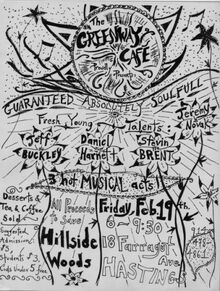 The
GREENWAY
CAFÉ
Proudly
Presents
GUARANTEED ABSOLUTELY SOULFULL
Fresh Young Talents:
Jeremy
Novak
Jeff
BUCKLEY
Daniel
Harnett
Stevin
BRENT
3 hot MUSICAL acts!!
Desserts &
Tea & Coffee
Sold
Suggested
Admission:
$5,
Students $3
Kids Under 5 free
All Proceeds
to Save
Hillside
Woods
Friday, Feb. 19th
6-9:30
18 Farragut
Ave
HASTINGS
914-
478-